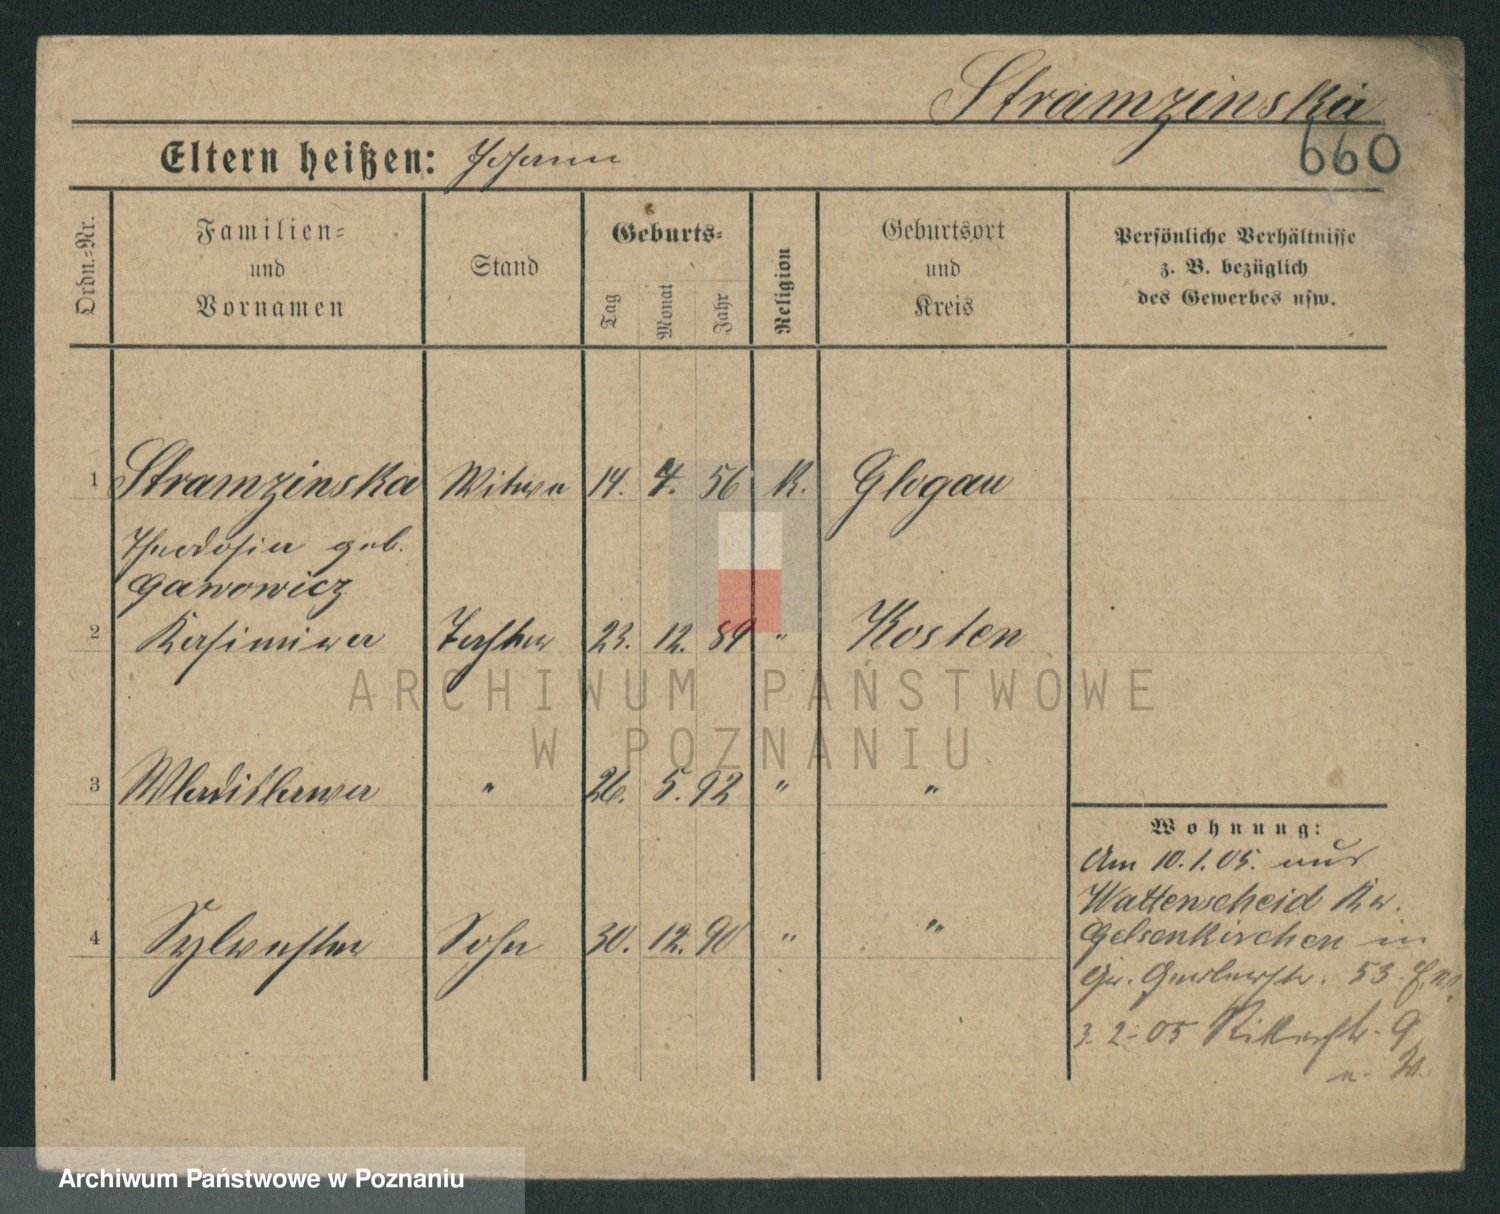 Stramzinska
660
Eltern heißen: Johann
Ordn.-Nr.
Familien-
und
Vornamen
Stand
Geburts-
Tag
Monat
Jahr
Religion
Geburtsort
und
Kreis
Persönliche Verhältnisse
z. B. bezüglich
des Gewerbes usw.
1 Stramzinska Witwe 14. 7. 56 K. Glogau
Theodosia geb.
Gawowicz
2 Kasimira Tochter 23. 12. 89 " Kosten
3 Wladislawa " 26. 5. 92 " "
4 Sylvester Sohn 30. 12. 90 " "
Wohnung:
Am 10.1.05. aus
Wattenscheid Kr.
Gelsenkirchen in
53
3. 2. 05 Ritterstr. 9
ARCHIWUM PAŃSTWOWE
W POZNANIU
Archiwum Państwowe w Poznaniu